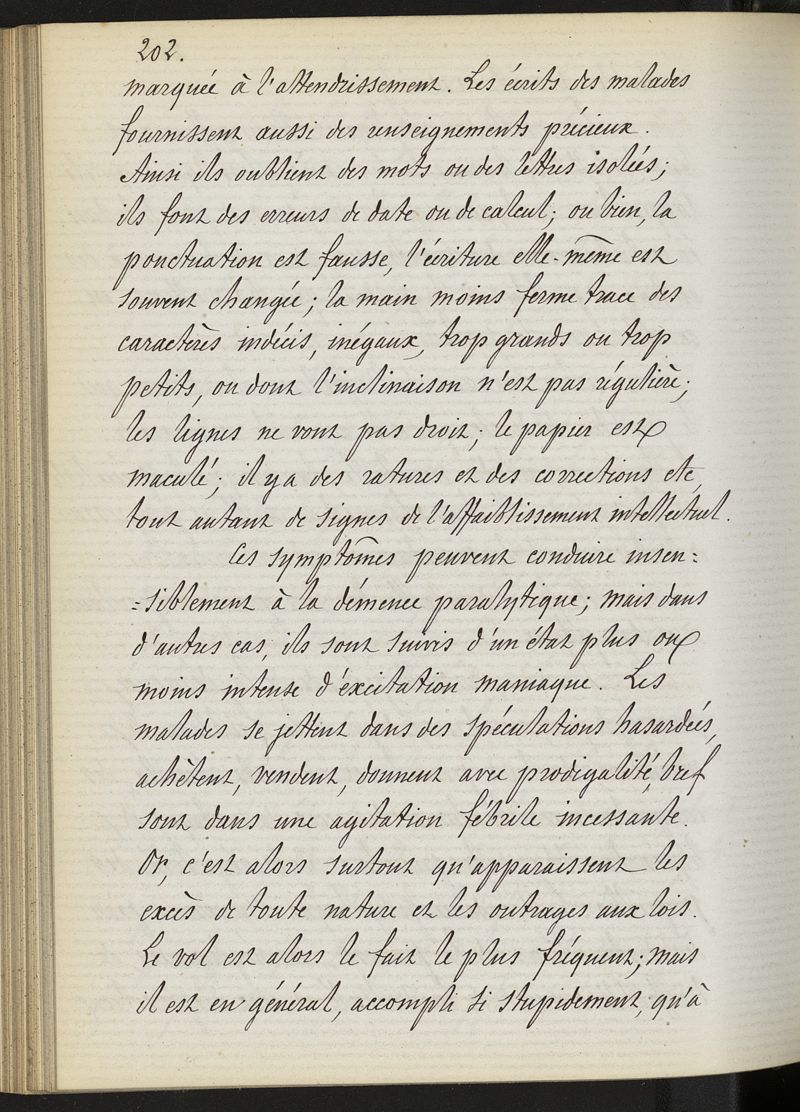 202.
marquée à l'attendrissement. Les écrits des malades
fournissent aussi des renseignements précieux.
Ainsi ils oublient des mots ou des lettres isolées;
ils font des erreurs de date ou de calcul; ou bien, la
ponctuation est fausse, l'écriture elle-même est
souvent changée; la main moins ferme trace des
caractères indécis, inégaux, trop grands ou trop
petits, ou dont l'inclinaison n'est pas régulière;
les lignes ne vont pas droit; le papier est
maculé; il y a des ratures et des corrections etc,
tout autant de signes de l'affaiblissement intellectuel.
Ces symptômes peuvent conduire insen=
=siblement à la démence paralytique; mais dans
d'autres cas, ils sont suivis d'un état plus ou
moins intense d'excitation maniaque. Les
malades se jettent dans des spéculations hasardées,
achètent, vendent, donnent avec prodigalité, bref
sont dans une agitation fébrile incessante.
Or, c'est alors surtout qu'apparaissent les
excès de toute nature et les outrages aux lois.
Le vol est alors le fait le plus fréquent; mais
il est en général, accompli si stupidement, qu'à